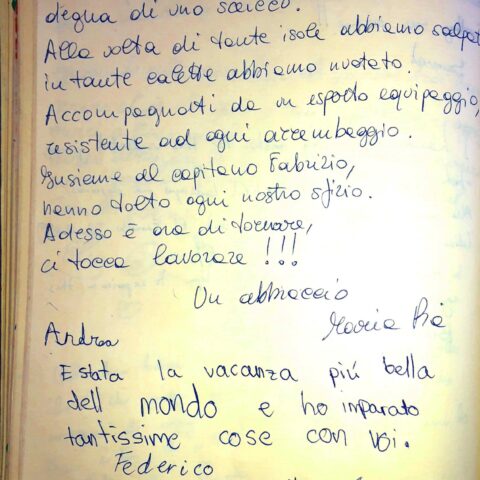 degna di uno sceicco.
Alla volta di tante isole abbiamo salpato
in tante calette abbiamo nuotato.
Accompagnati da un esperto equipaggio,
resistente ad ogni arrembaggio.
Insieme al capitano Fabrizio,
hanno tolto ogni nostro sfizio.
Adesso è ora di tornare,
ci tocca lavorare !!!
Un abbraccio
Maria Pia
Andrea
E stata la vacanza più bella
dell mondo e ho imparato
tantissime cose con voi.
Federico